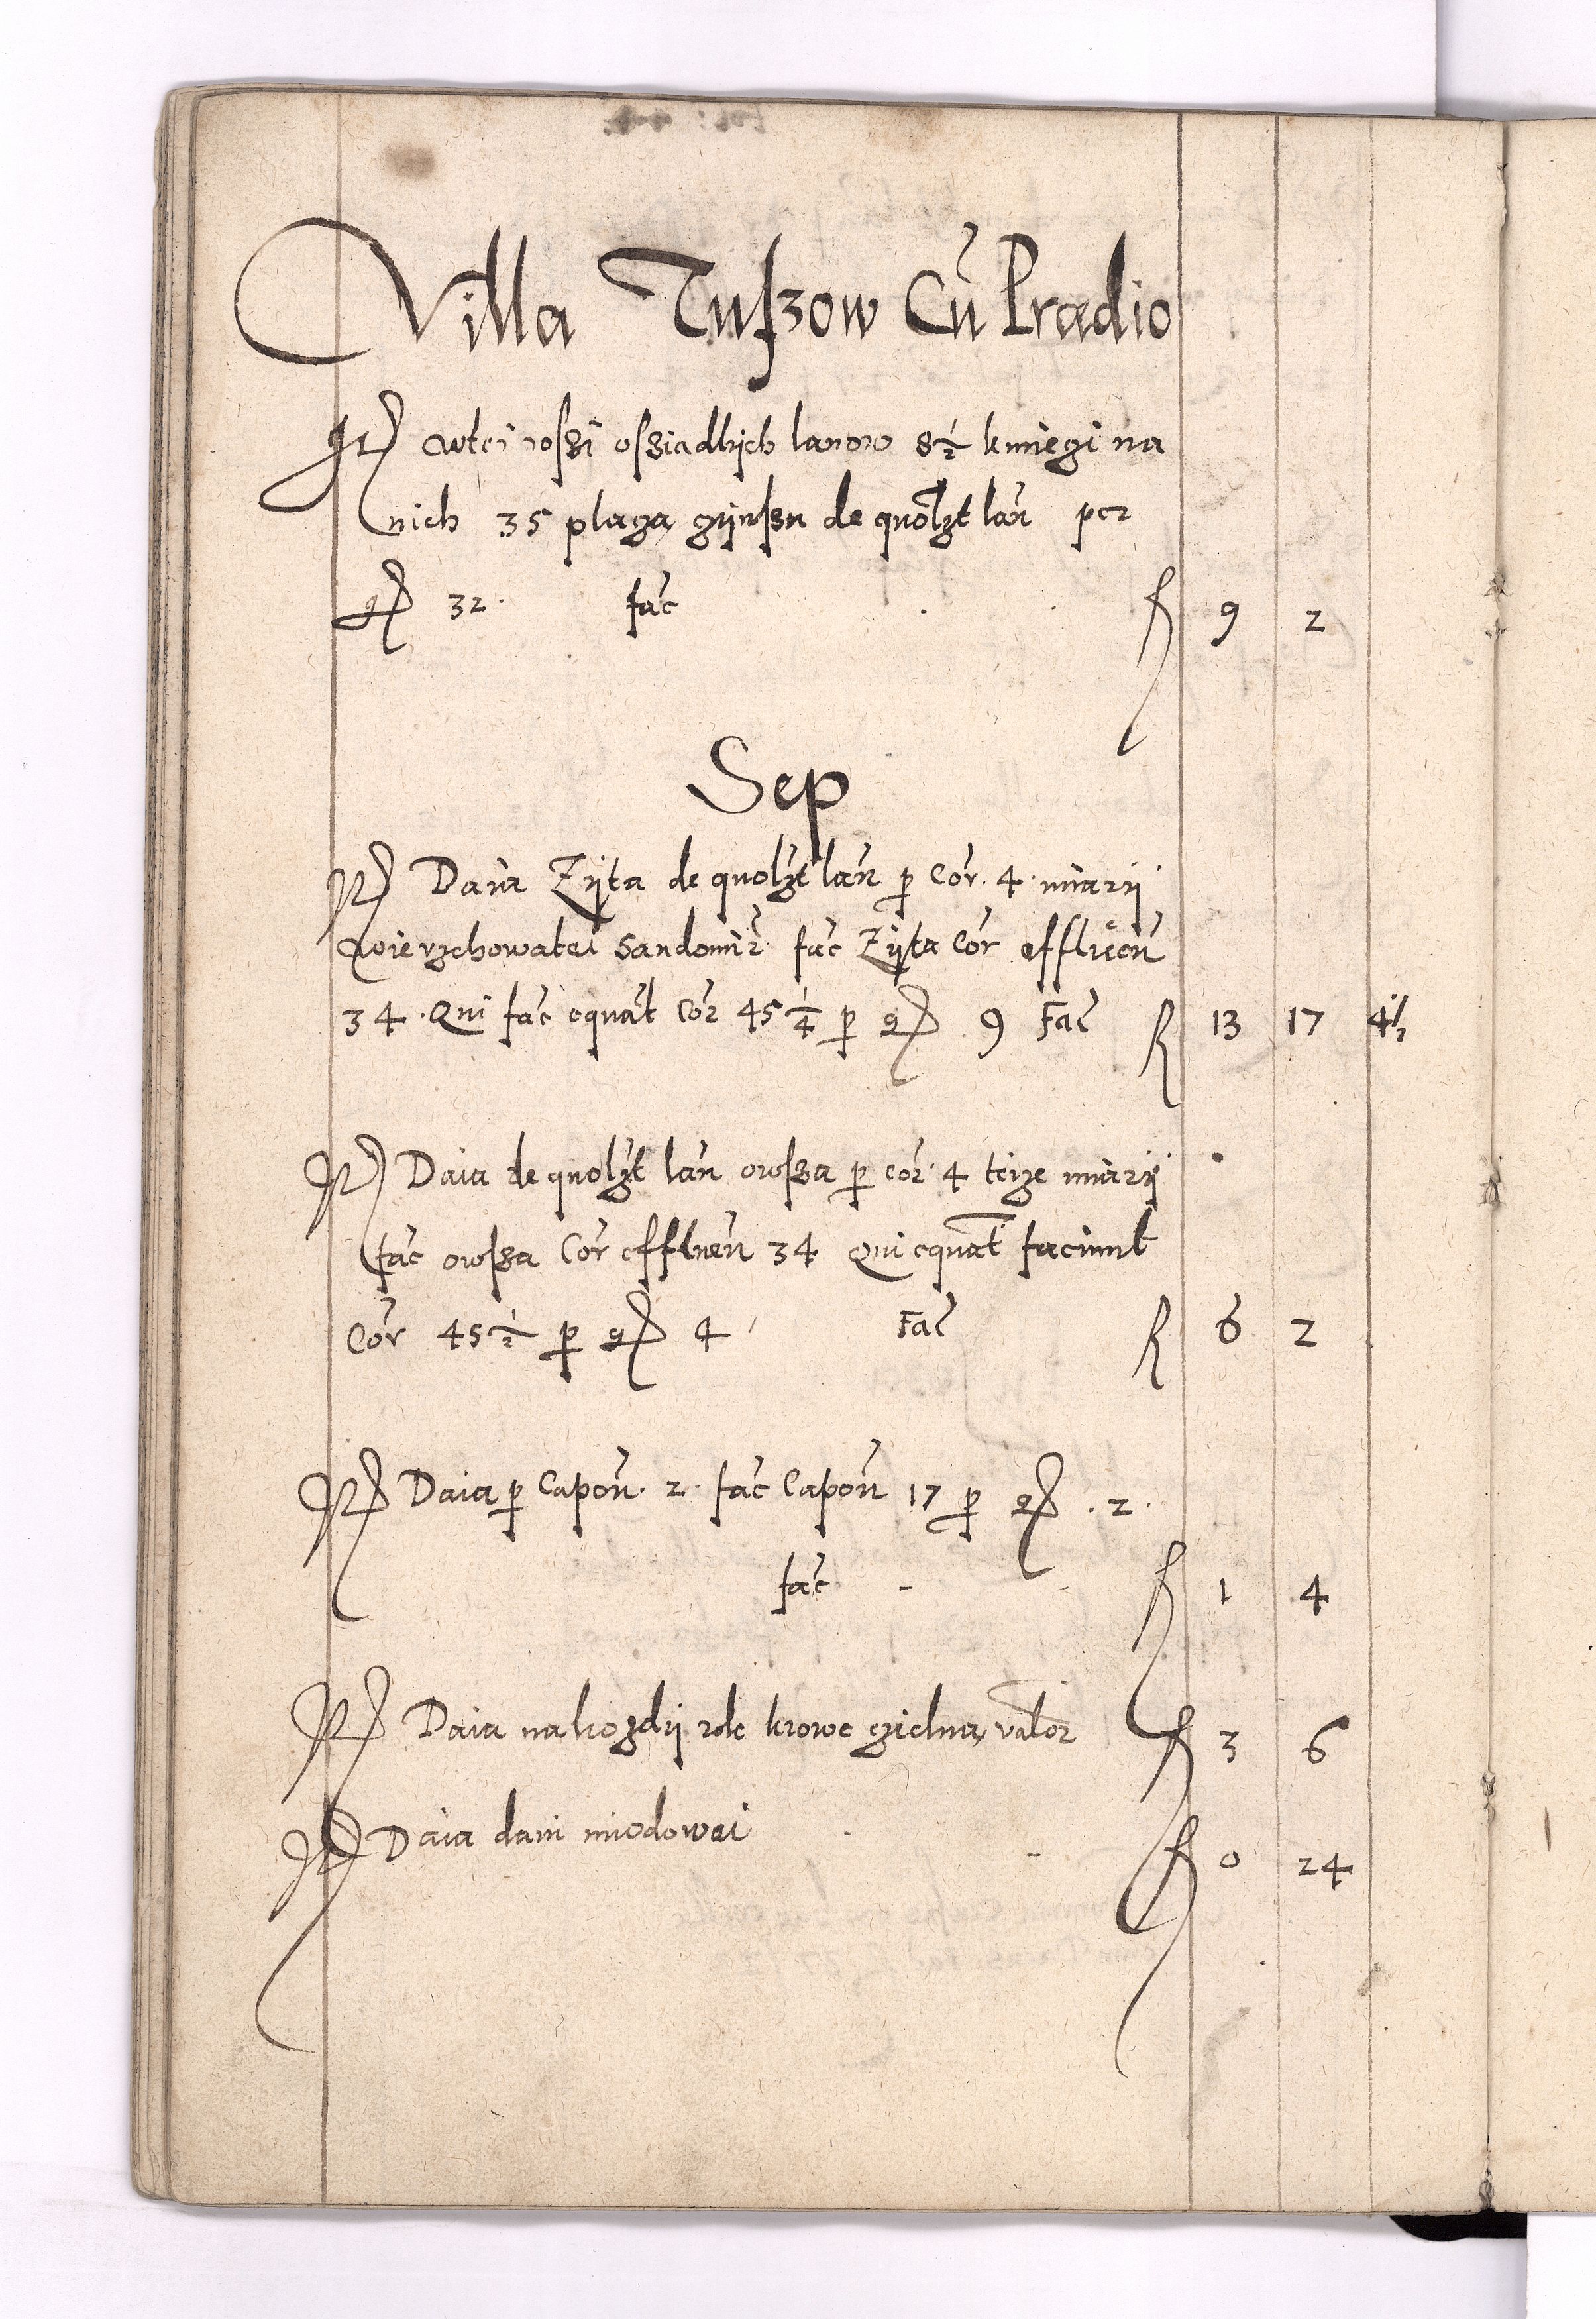 Villa Tuszow Cũ Prædio
It wtei wssi ossiadlych lanow 8½ kmiegi na
nich 35 placza czÿnssu de quolzt lań per
gr 32. fać f 9 2
Sep
It Daia Zÿta de quolzt lań p Cor. 4. miarÿ
wierzchowatei Sandomir fać Zÿta Cor effluen
34. Qui fać equat Cor 45¼ p gr 9 Fać f 13 17 4½
It Daia de quolzt lań owssa p cor. 4 teize miarÿ
fać owssa Cor effluen 34 Qui equat faciunt
Cor 45½ p gr 4 Fać f 6 2
It Daia p Capoń. 2. fać Capoń 17 p gr . 2.
fać - f 1 4
It Daia na kozdÿ rok krowe gielna valor f 3 6
It Daia dani miodowei - f 0 24